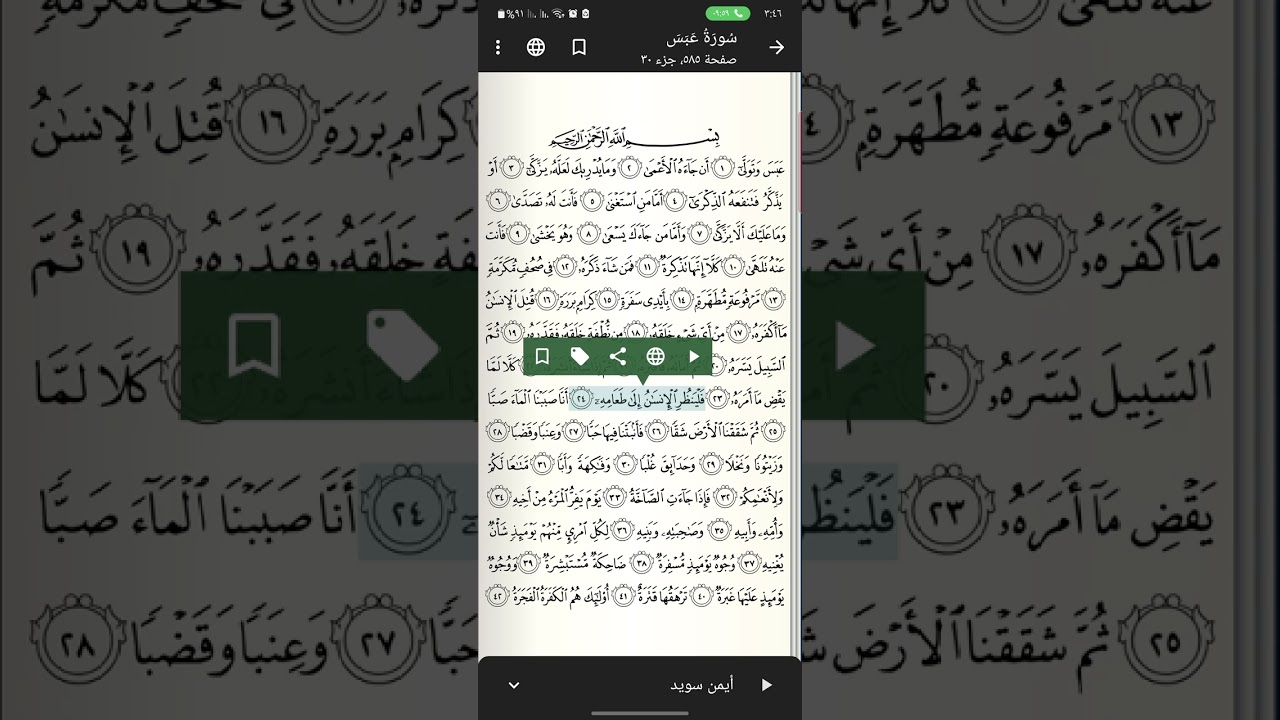 ٣:٤٦
٠٩:٥٩
٩١%
سُورَةُ عَبَسَ
صفحة ٥٨٥، جزء ٣٠
بِسْمِ ٱللَّهِ ٱلرَّحْمَٰنِ ٱلرَّحِيمِ
عَبَسَ وَتَوَلَّىٰٓ ١ أَن جَآءَهُ ٱلْأَعْمَىٰ ٢ وَمَا يُدْرِيكَ لَعَلَّهُۥ يَزَّكَّىٰٓ ٣ أَوْ
يَذَّكَّرُ فَتَنفَعَهُ ٱلذِّكْرَىٰٓ ٤ أَمَّا مَنِ ٱسْتَغْنَىٰ ٥ فَأَنتَ لَهُۥ تَصَدَّىٰ ٦
وَمَا عَلَيْكَ أَلَّا يَزَّكَّىٰ ٧ وَأَمَّا مَن جَآءَكَ يَسْعَىٰ ٨ وَهُوَ يَخْشَىٰ ٩ فَأَنتَ
عَنْهُ تَلَهَّىٰ ١٠ كَلَّآ إِنَّهَا تَذْكِرَةٌ ١١ فَمَن شَآءَ ذَكَرَهُۥ ١٢ فِى صُحُفٍ مُّكَرَّمَةٍ
١٣ مَّرْفُوعَةٍ مُّطَهَّرَةٍۭ ١٤ بِأَيْدِى سَفَرَةٍ ١٥ كِرَامٍۭ بَرَرَةٍ ١٦ قُتِلَ ٱلْإِنسَٰنُ
مَآ أَكْفَرَهُۥ ١٧ مِنْ أَىِّ شَىْءٍ خَلَقَهُۥ ١٨ مِن نُّطْفَةٍ خَلَقَهُۥ فَقَدَّرَهُۥ ١٩ ثُمَّ
ٱلسَّبِيلَ يَسَّرَهُۥ ٢٠ كَلَّا لَمَّا
يَقْضِ مَآ أَمَرَهُۥ ٢٣ فَلْيَنظُرِ ٱلْإِنسَٰنُ إِلَىٰ طَعَامِهِۦٓ ٢٤ أَنَّا صَبَبْنَا ٱلْمَآءَ صَبًّا
٢٥ ثُمَّ شَقَقْنَا ٱلْأَرْضَ شَقًّا ٢٦ فَأَنۢبَتْنَا فِيهَا حَبًّا ٢٧ وَعِنَبًا وَقَضْبًا ٢٨
وَزَيْتُونًا وَنَخْلًا ٢٩ وَحَدَآئِقَ غُلْبًا ٣٠ وَفَٰكِهَةً وَأَبًّا ٣١ مَّتَٰعًا لَّكُمْ
وَلِأَنْعَٰمِكُمْ ٣٢ فَإِذَا جَآءَتِ ٱلصَّآخَّةُ ٣٣ يَوْمَ يَفِرُّ ٱلْمَرْءُ مِنْ أَخِيهِ ٣٤
وَأُمِّهِۦ وَأَبِيهِ ٣٥ وَصَٰحِبَتِهِۦ وَبَنِيهِ ٣٦ لِكُلِّ ٱمْرِئٍ مِّنْهُمْ يَوْمَئِذٍ شَأْنٌ
يُغْنِيهِ ٣٧ وُجُوهٌ يَوْمَئِذٍ مُّسْفِرَةٌ ٣٨ ضَاحِكَةٌ مُّسْتَبْشِرَةٌ ٣٩ وَوُجُوهٌ
يَوْمَئِذٍ عَلَيْهَا غَبَرَةٌ ٤٠ تَرْهَقُهَا قَتَرَةٌ ٤١ أُو۟لَٰٓئِكَ هُمُ ٱلْكَفَرَةُ ٱلْفَجَرَةُ ٤٢
أيمن سويد